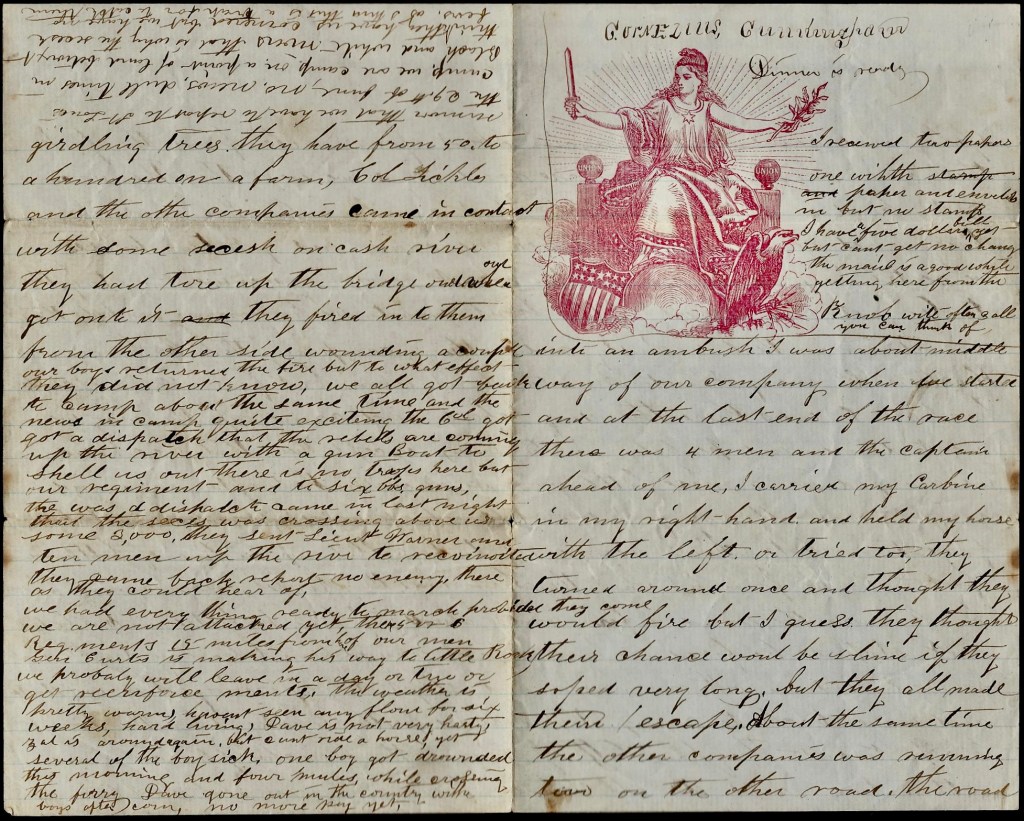 Cornelius, Cunningham
Dinner is ready
UNION
UNION
I received two papers
one withth stamp
and paper and envelop
in but no stamp
I have a five dollar bill yet
but cant get no change
the maeil is a good while
getting here from the
Knob will often gall
you can think of
into an ambush I was about middle
way of our company when we started
and at the last end of the race
there was 4 men and the captain
ahead of me, I carried my Carbine
in my right hand and held my horse
with the left. or tried to, they
turned around once and thought they
would fire but I guess they thought
their chance woul be slime if they
soped very long, but they all made
their escape, About the same time
the other companies was running
two on the other road. the road
girdling trees they have from 50. to
a hundred on a farm, Col Sickles
and the othe companies came in contact
with some secesh on cash river
they had tore up the bridge and when our
got onto it and they fired in to them
from the other side wounding a coupl
our boys returned the fire but to what effect
they did not know, we all got back
to Camp about the same time and the
news in camp quite exciting the Col got
got a dispatch that the rebels are coming
up the river with a gun Boat to
shell us out there is no troops here but
our regiment and to six lbs guns,
the was a dispatch came in last night
that the seces was crossing above us
some 3,000, they sent Lieut Warner and
ten men up the rive to reconoiter
they came back report no enemy, there
as they could hear of,
we had every thing ready to march provided they come
we are not attacked yet there 5 or 6
Regiments 15 miles from of our men
Gen Curtis is making his way to Little Rock
we probaly will leave in a day or two or
get reenforce ments, the weather is
pretty warm, havent seen any flour for six
weeks, hard living Dave is not very harty,
is around again, but cant ride a horse yet
several of the boy sick, one boy got drounded
this morning and four mules, while crossing
the ferry Dave gone out in the country with
boys after corn, no more pay yet,
rumor that we have to report to St Louis
the 29th of June, no news, dull times in
camp, we are camp on a point of land between
black and white rivers that is why the secesh
think they have us cornered but we have